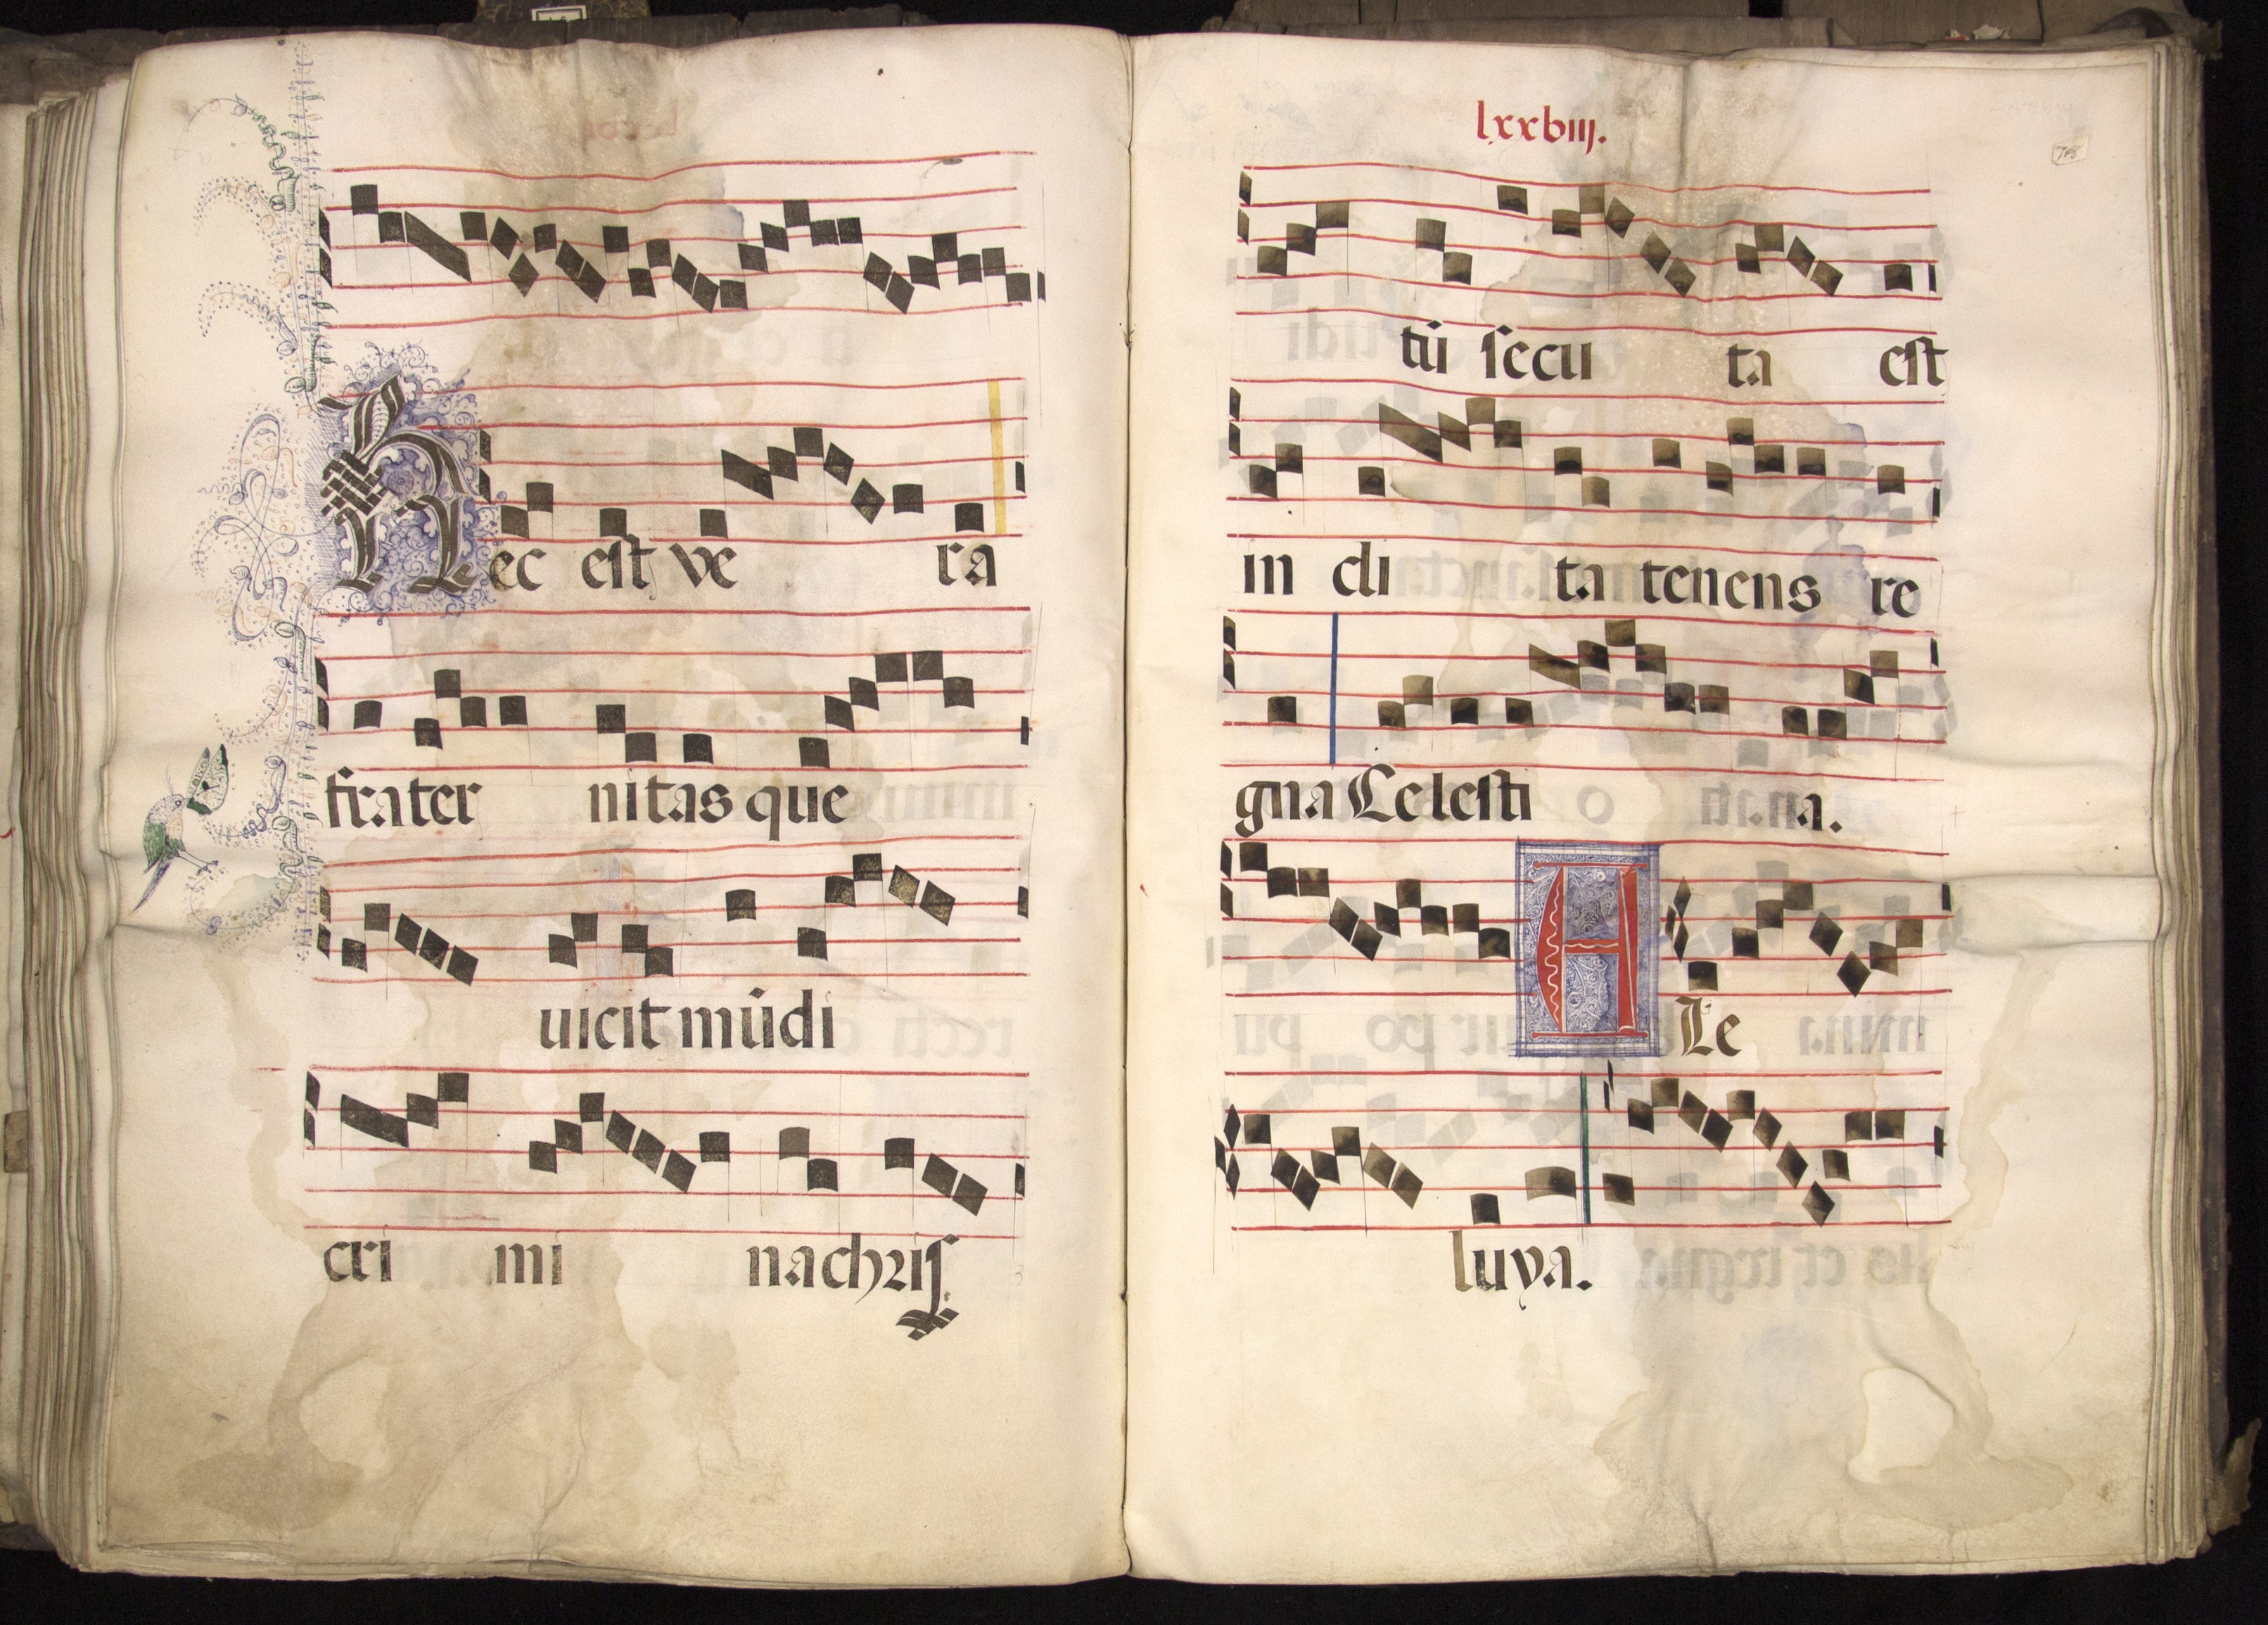 Hec est ve ra
frater nitas que
uicit mūdi
cri mi na chris
lxxbiij.
tū secu ta est
in cli ta tenens re
gna Celesti na.
A Le
luya.